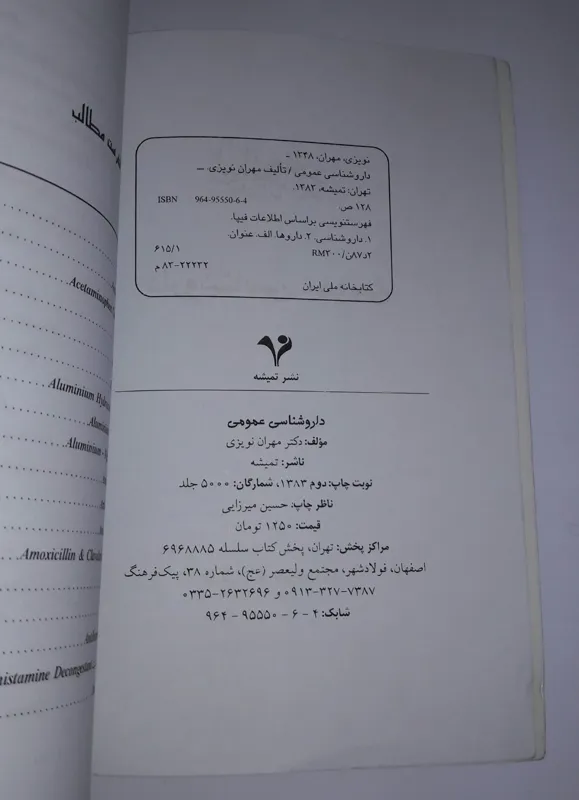 نویزی، مهران، ۱۳۴۸ ـ
داروشناسی عمومی / تألیف مهران نویزی. ــ
تهران: تمیشه، ۱۳۸۳.
۱۲۸ ص.
ISBN 964-95550-6-4
فهرستنویسی براساس اطلاعات فیپا.
۱. داروشناسی. ۲. داروها. الف. عنوان.
۲د۸۷ن/RM۳۰۰ ۶۱۵/۱
۸۳-۲۲۲۳۲ م
کتابخانه ملی ایران
نشر تمیشه
داروشناسی عمومی
مؤلف: دکتر مهران نویزی
ناشر: تمیشه
نوبت چاپ: دوم ۱۳۸۳، شمارگان: ۵۰۰۰ جلد
ناظر چاپ: حسین میرزایی
قیمت: ۱۲۵۰ تومان
مراکز پخش: تهران، پخش کتاب سلسله ۶۹۶۸۸۸۵
اصفهان، فولادشهر، مجتمع ولیعصر (عج)، شماره ۳۸، پیک‌فرهنگ
۰۹۱۳-۳۲۷-۷۳۸۷ و ۰۳۳۵-۲۶۳۲۶۹۶
شابک: ۴ - ۶ - ۹۵۵۵۰ - ۹۶۴
مطالب
Acetaminophen
Aluminium
Aluminium -
Amoxicillin &
Decongestant